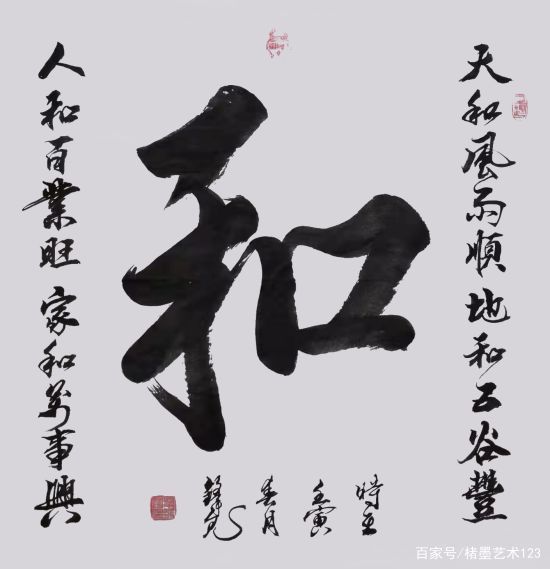 天和風雨順地和五谷豐
和
人和百業旺 家和萬事興
時至
壬寅
春月
百家号/楮墨艺术123